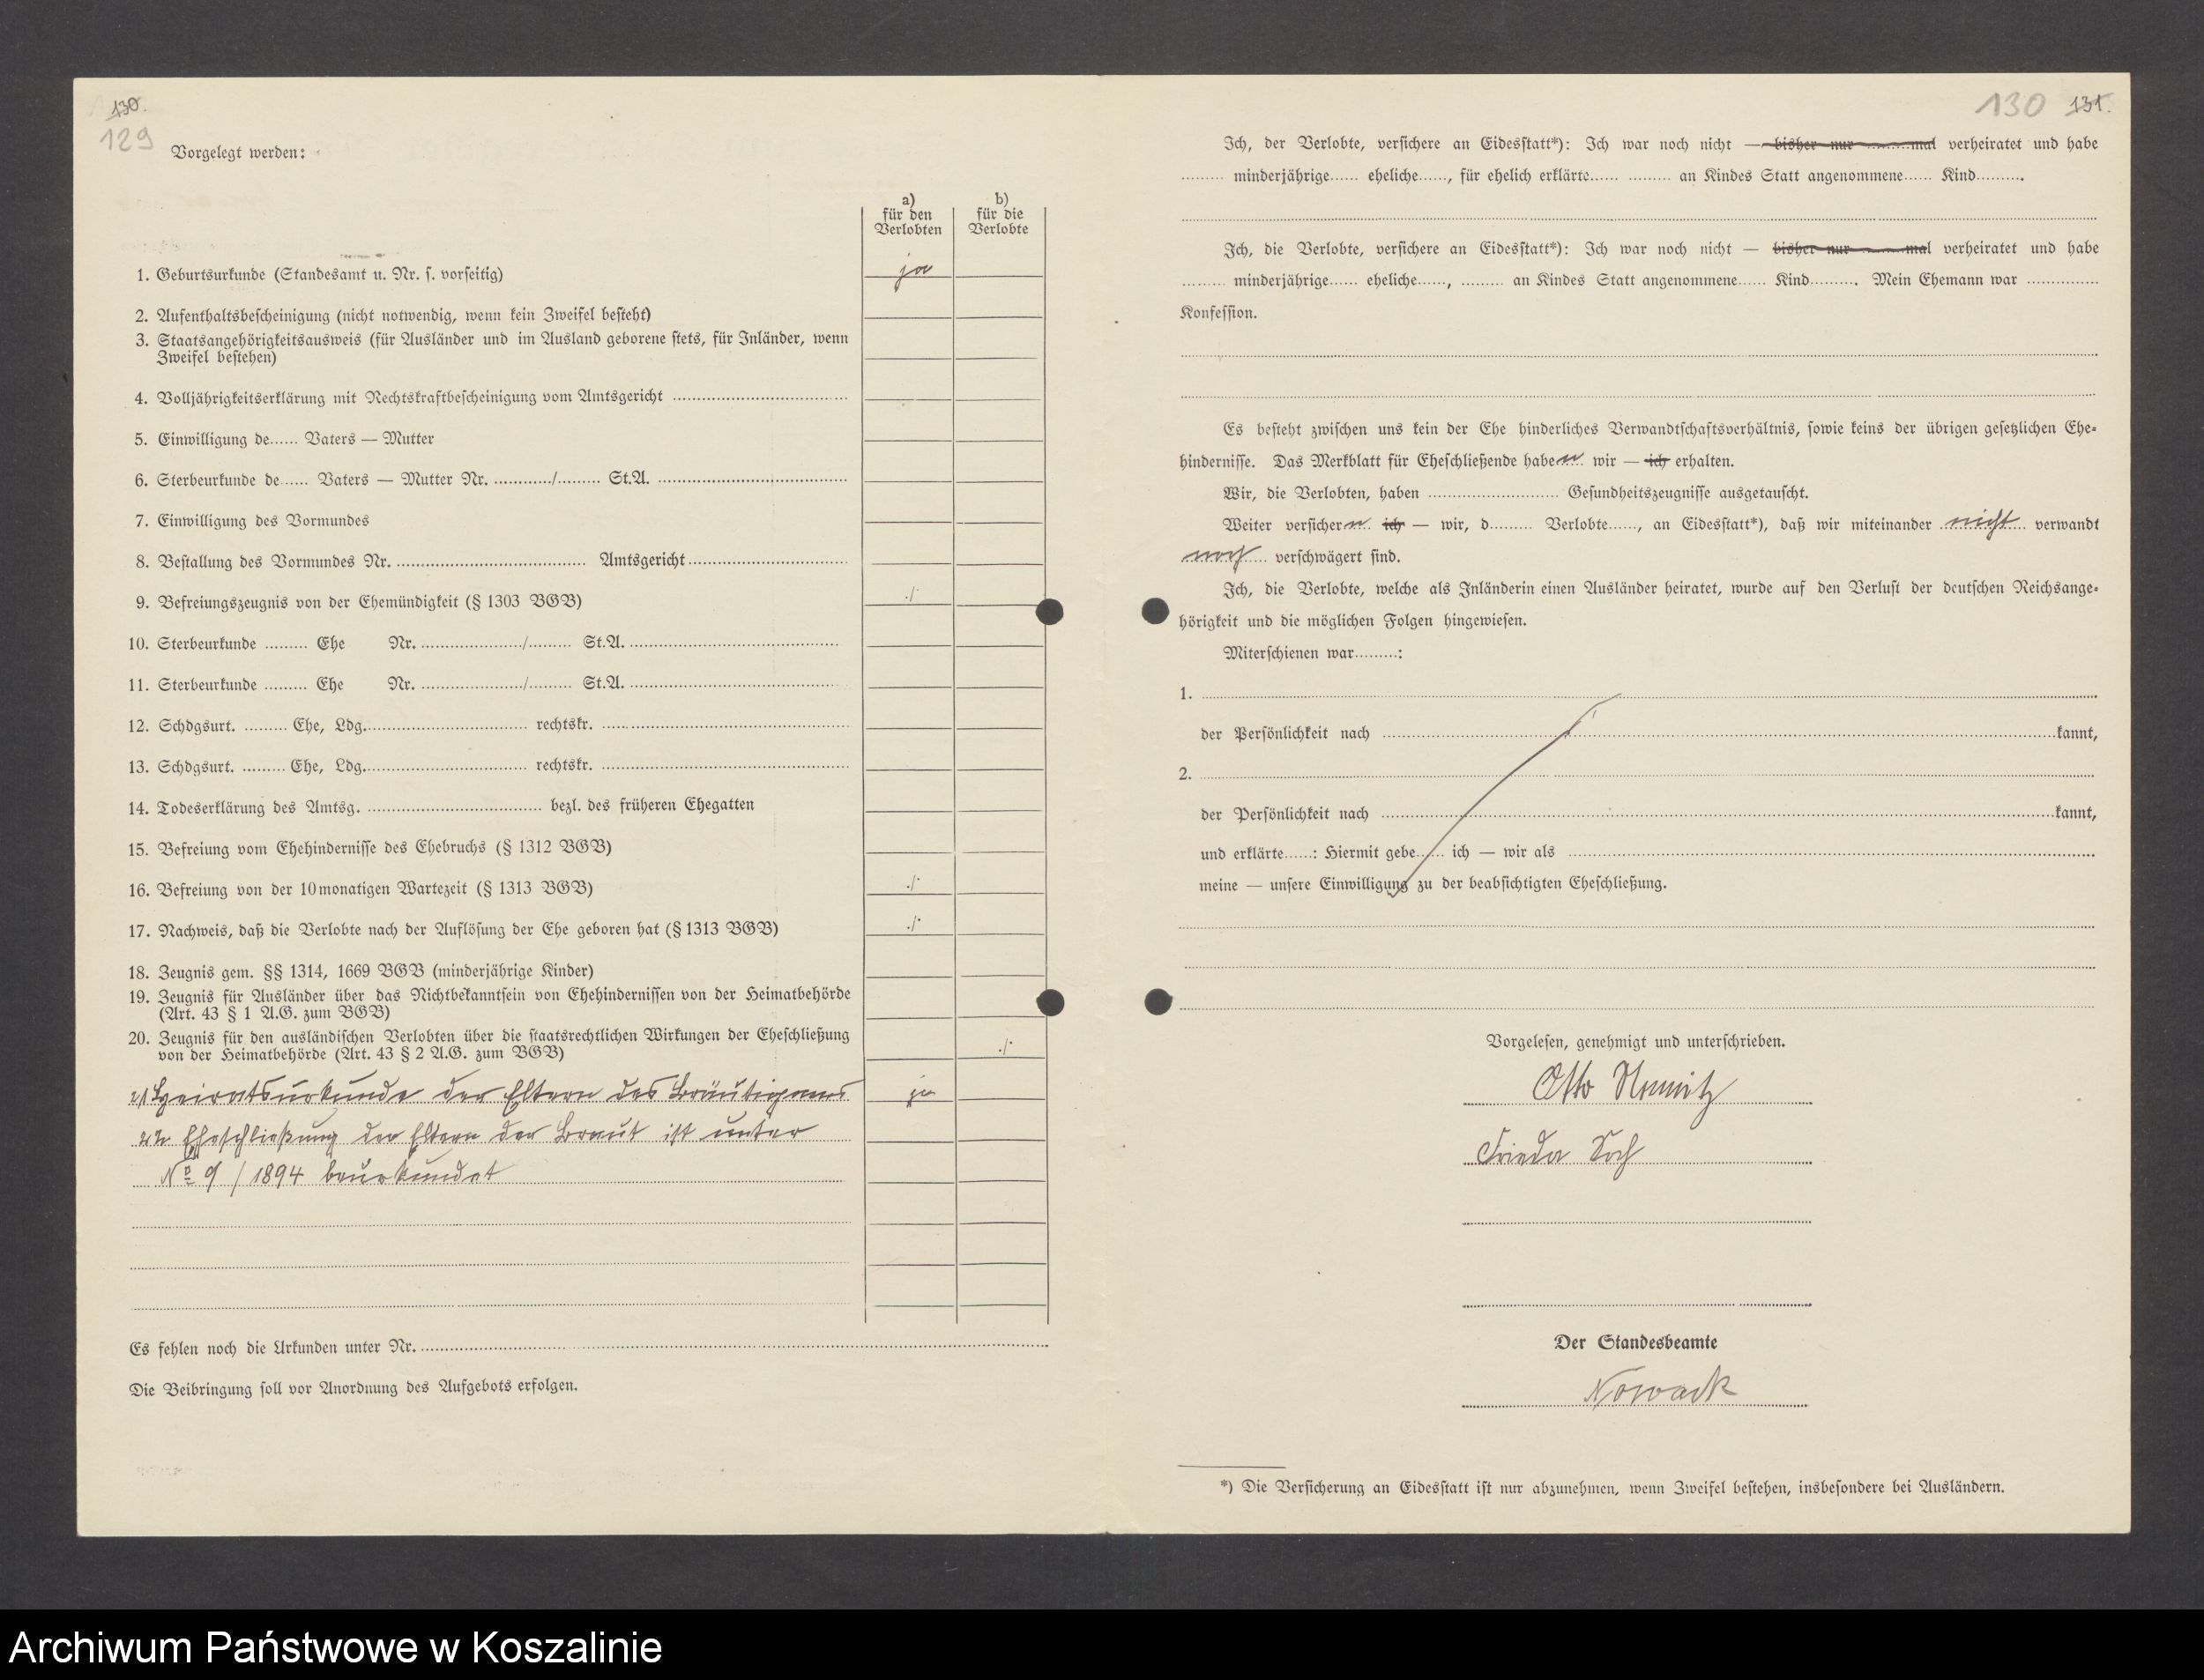 130.
129
Vorgelegt werden:
a) für den Verlobten
b) für die Verlobte
1. Geburtsurkunde (Standesamt u. Nr. s. vorseitig) ja
2. Aufenthaltsbescheinigung (nicht notwendig, wenn kein Zweifel besteht)
3. Staatsangehörigkeitsausweis (für Ausländer und im Ausland geborene stets, für Inländer, wenn
Zweifel bestehen)
4. Volljährigkeitserklärung mit Rechtskraftbescheinigung vom Amtsgericht ........
5. Einwilligung de...... Vaters — Mutter
6. Sterbeurkunde de...... Vaters — Mutter Nr. ............/......... St.A. ........
7. Einwilligung des Vormundes
8. Bestallung des Vormundes Nr. ........ Amtsgericht ........
9. Befreiungszeugnis von der Ehemündigkeit (§ 1303 BGB) ./.
10. Sterbeurkunde ......... Ehe Nr. ........../......... St.A. ........
11. Sterbeurkunde ......... Ehe Nr. ........../......... St.A. ........
12. Schdgsurt. ......... Ehe, Ldg. ........ rechtskr. ........
13. Schdgsurt. ......... Ehe, Ldg. ........ rechtskr. ........
14. Todeserklärung des Amtsg. ........ bezl. des früheren Ehegatten
15. Befreiung vom Ehehindernisse des Ehebruchs (§ 1312 BGB)
16. Befreiung von der 10monatigen Wartezeit (§ 1313 BGB) ./.
17. Nachweis, daß die Verlobte nach der Auflösung der Ehe geboren hat (§ 1313 BGB) ./.
18. Zeugnis gem. §§ 1314, 1669 BGB (minderjährige Kinder)
19. Zeugnis für Ausländer über das Nichtbekanntsein von Ehehindernissen von der Heimatbehörde
(Art. 43 § 1 A.G. zum BGB)
20. Zeugnis für den ausländischen Verlobten über die staatsrechtlichen Wirkungen der Eheschließung
von der Heimatbehörde (Art. 43 § 2 A.G. zum BGB) ./.
21 Heiratsurkunde der Eltern des Bräutigams ja
22. Eheschließung der Eltern der Braut ist unter
No 9/1894 beurkundet
Es fehlen noch die Urkunden unter Nr. ........
Die Beibringung soll vor Anordnung des Aufgebots erfolgen.
130 131.
Ich, der Verlobte, versichere an Eidesstatt*): Ich war noch nicht — bisher nur .........mal verheiratet und habe
......... minderjährige...... eheliche......, für ehelich erklärte...... ......... an Kindes Statt angenommene...... Kind..........
Ich, die Verlobte, versichere an Eidesstatt*): Ich war noch nicht — bisher nur .........mal verheiratet und habe
......... minderjährige...... eheliche......, ......... an Kindes Statt angenommene...... Kind.......... Mein Ehemann war ........
Konfession.
Es besteht zwischen uns kein der Ehe hinderliches Verwandtschaftsverhältnis, sowie keins der übrigen gesetzlichen Ehe-
hindernisse. Das Merkblatt für Eheschließende haben wir — ich erhalten.
Wir, die Verlobten, haben ........ Gesundheitszeugnisse ausgetauscht.
Weiter versichern ich — wir, d......... Verlobte......, an Eidesstatt*), daß wir miteinander nicht verwandt
noch verschwägert sind.
Ich, die Verlobte, welche als Inländerin einen Ausländer heiratet, wurde auf den Verlust der deutschen Reichsange-
hörigkeit und die möglichen Folgen hingewiesen.
Miterschienen war.........:
1. ........
der Persönlichkeit nach ........kannt,
2. ........
der Persönlichkeit nach ........kannt,
und erklärte......: Hiermit gebe...... ich — wir als ........
meine — unsere Einwilligung zu der beabsichtigten Eheschließung.
Vorgelesen, genehmigt und unterschrieben.
Otto
Frieda Koch
Der Standesbeamte
Nowack
*) Die Versicherung an Eidesstatt ist nur abzunehmen, wenn Zweifel bestehen, insbesondere bei Ausländern.
Archiwum Państwowe w Koszalinie